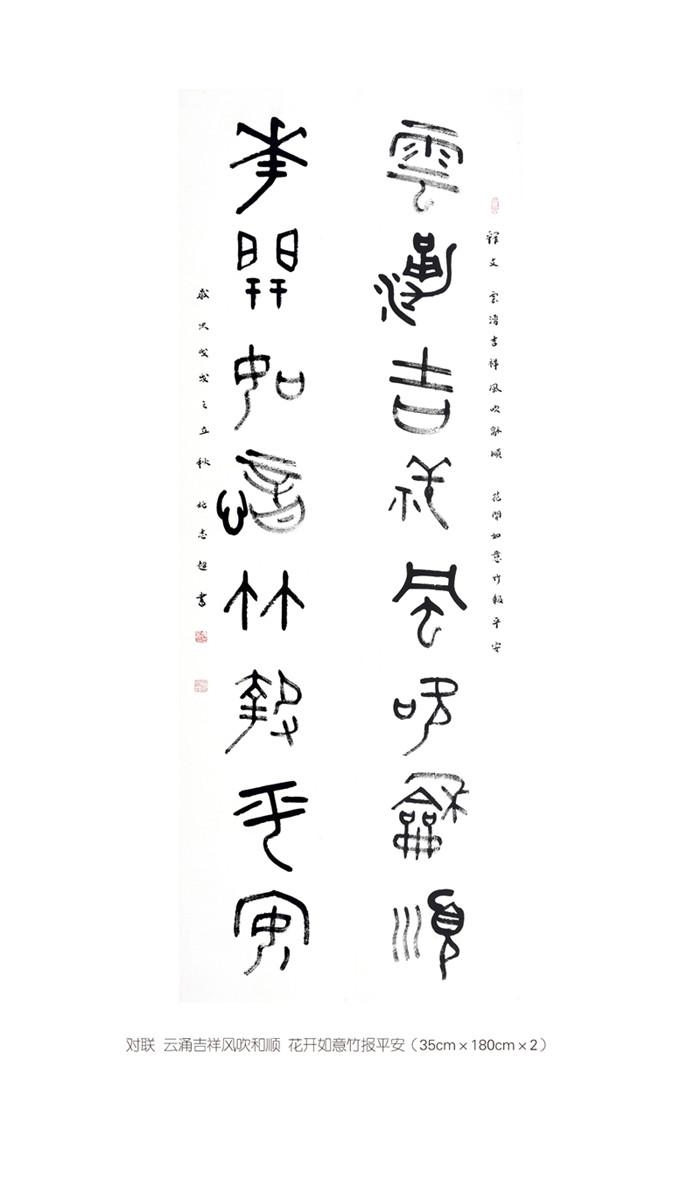 釋文 雲湧吉祥風吹龢順 花開如意竹報平安
雲湧吉祥風吹龢順
華開如意竹報平安
歲次之立秋 志超書
对联 云涌吉祥风吹和顺 花开如意竹报平安（35cm×180cm×2）